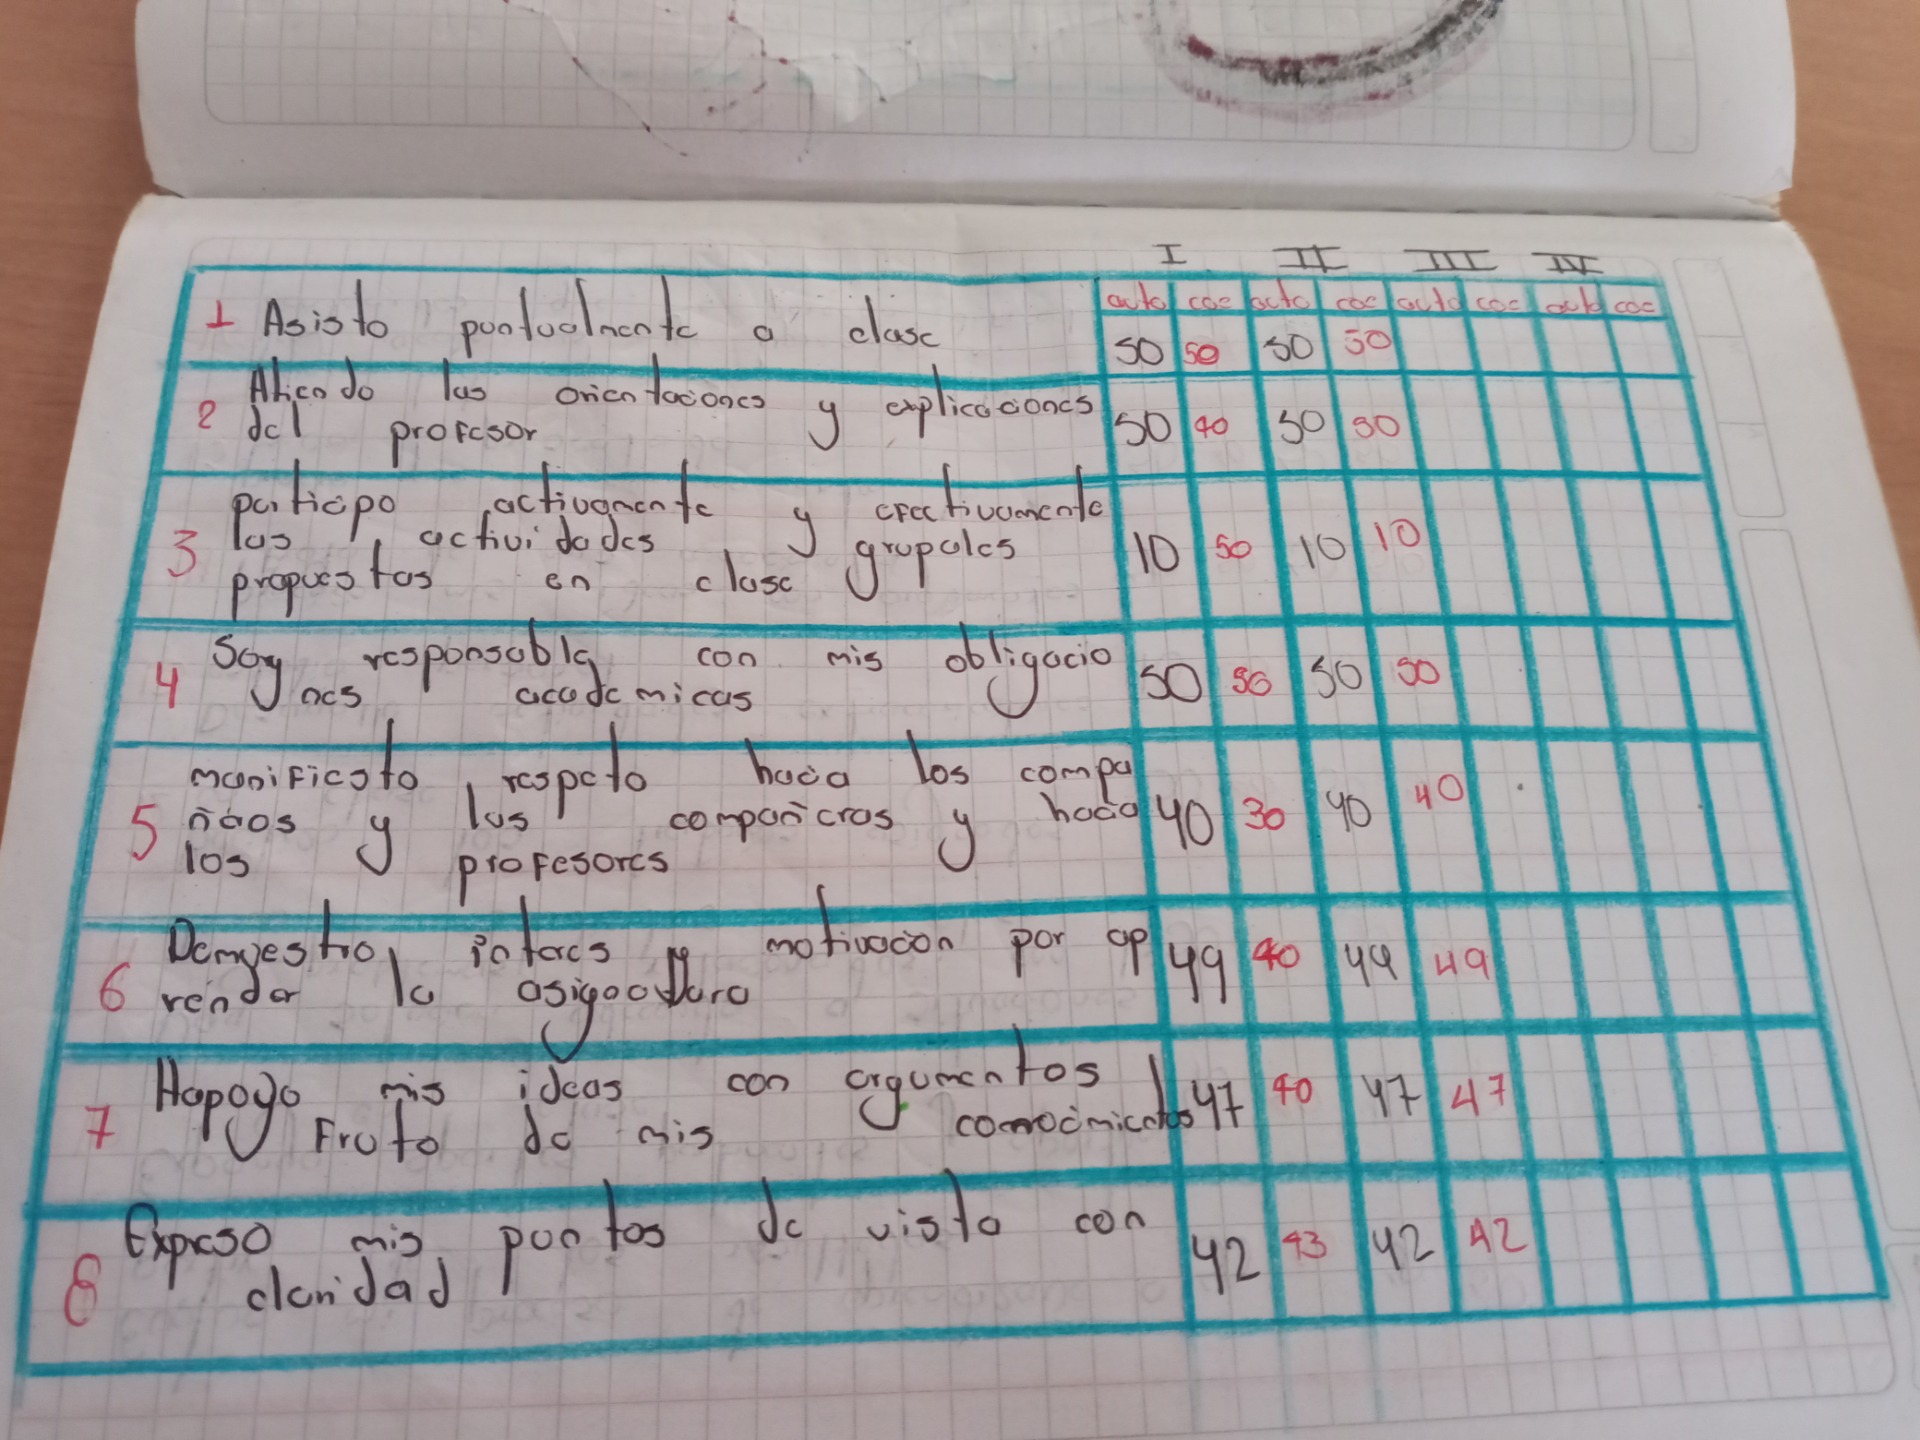 I II III IV
auto coe auto coe auto coe auto coe
1 Asisto puntualmente a clase 50 50 50 50
Atiendo las orientaciones y explicaciones
2 del profesor 50 40 50 50
participo activamente y efectivamente
3 las actividades grupales 10 50 10 10
propuestas en clase
Soy responsable con mis obligacio
4 nes academicas 50 50 50 50
manifiesto respeto hacia los compa
5 ñeros y las compañeras y hacia 40 30 40 40
los profesores
Demuestro interes y motivacion por ap
6 render la asignatura 49 40 49 49
Hapoyo mis ideas con argumentos
7 Fruto de mis conocimientos 47 40 47 47
Expreso mis puntos de vista con
8 claridad 42 43 42 42